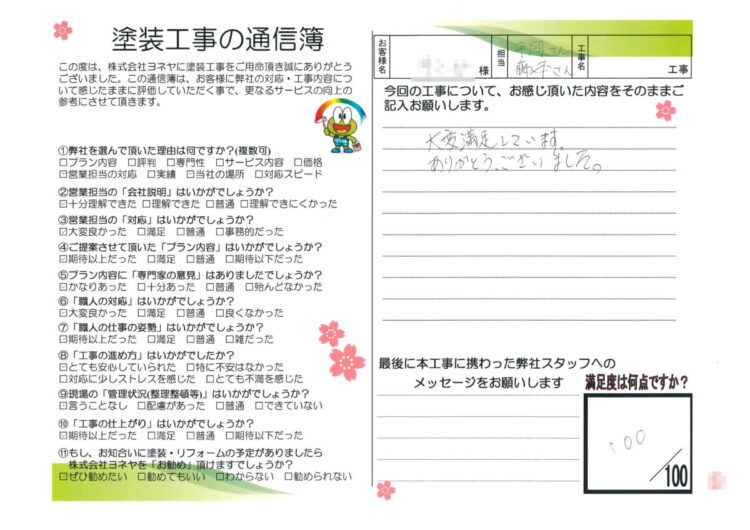 塗装工事の通信簿
この度は、株式会社ヨネヤに塗装工事をご用命頂き誠にありがとう
ございました。この通信簿は、お客様に弊社の対応・工事内容につ
いて感じたままに評価していただく事で、更なるサービスの向上の
参考にさせて頂きます。
①弊社を選んで頂いた理由は何ですか?(複数可)
□プラン内容 □評判 □専門性 □サービス内容 □価格
☑営業担当の対応 □実績 ☑当社の場所 □対応スピード
②営業担当の「会社説明」はいかがでしょうか?
☑十分理解できた □理解できた □普通 □理解できにくかった
③営業担当の「対応」はいかがでしょうか?
☑大変良かった □満足 □普通 □事務的だった
④ご提案させて頂いた「プラン内容」はいかがでしょうか?
☑期待以上だった □満足 □普通 □期待以下だった
⑤プラン内容に「専門家の意見」はありましたでしょうか?
☑かなりあった □十分あった □普通 □殆んどなかった
⑥「職人の対応」はいかがでしょうか?
☑大変良かった □満足 □普通 □良くなかった
⑦「職人の仕事の姿勢」はいかがでしょうか?
☑期待以上だった □満足 □普通 □雑だった
⑧「工事の進め方」はいかがでしたか?
☑とても安心していられた □特に不安はなかった
□対応に少しストレスを感じた □とても不満を感じた
⑨現場の「管理状況(整理整頓等)」はいかがでしょうか?
☑言うことなし □配慮があった □普通 □できていない
⑩「工事の仕上がり」はいかがでしょうか?
☑期待以上だった □満足 □普通 □期待以下だった
⑪もし、お知合いに塗装・リフォームの予定がありましたら
株式会社ヨネヤを「お勧め」頂けますでしょうか?
□ぜひ勧めたい □勧めてもいい □わからない □勧められない
お客様名
様
担当
さん
藤本さん
工事名
工事
今回の工事について、お感じ頂いた内容をそのままご
記入お願いします。
大変満足しています。
ありがとうございました。
最後に本工事に携わった弊社スタッフへの
メッセージをお願いします
満足度は何点ですか?
100
/100